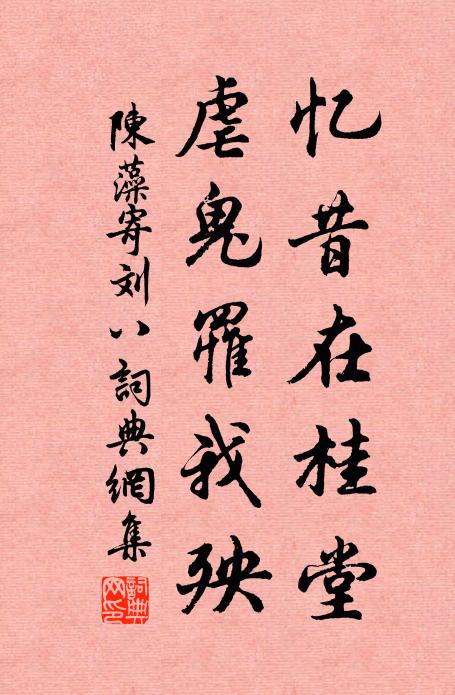 忆昔在桂堂
虐鬼罹我殃
陳藻寄刘八詞典網集